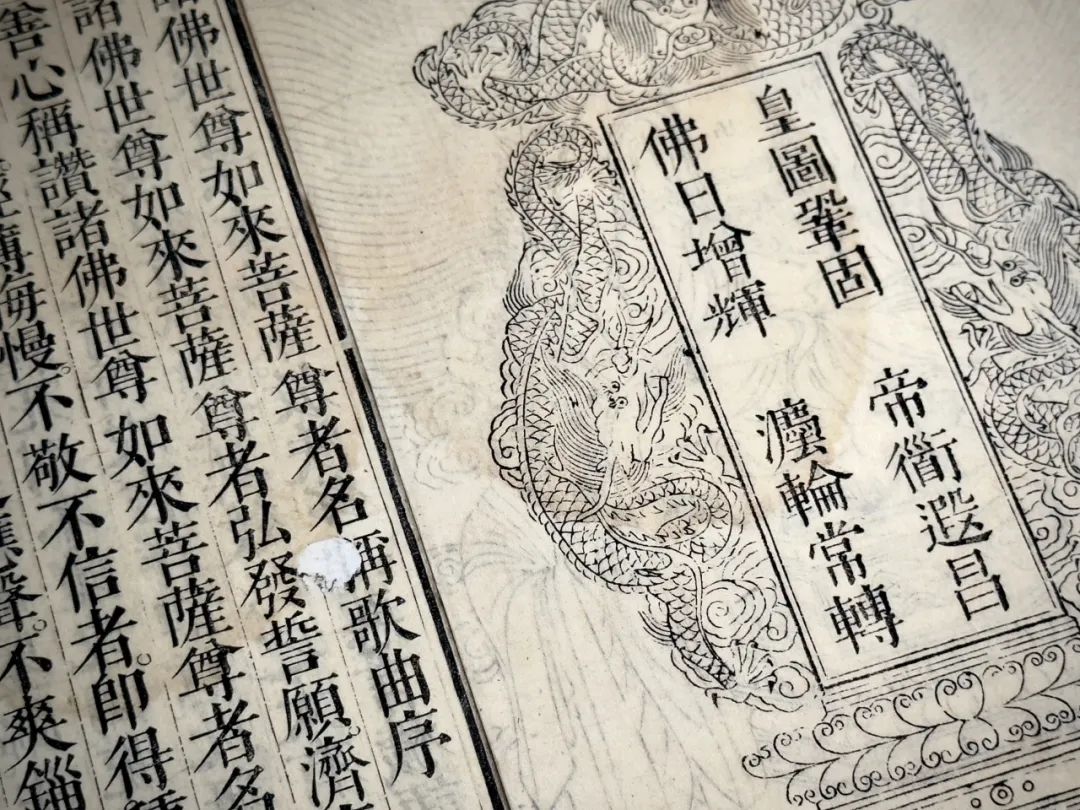 皇圖鞏固 帝衜遐昌
佛日增輝 灋輪常轉
諸佛世尊如來菩薩尊者名稱歌曲序
諸佛世尊如來菩薩尊者弘發誓願濟
善心稱讚諸佛世尊如來菩薩尊者名
侮慢。不敬不信者。即得
聲。不爽錙